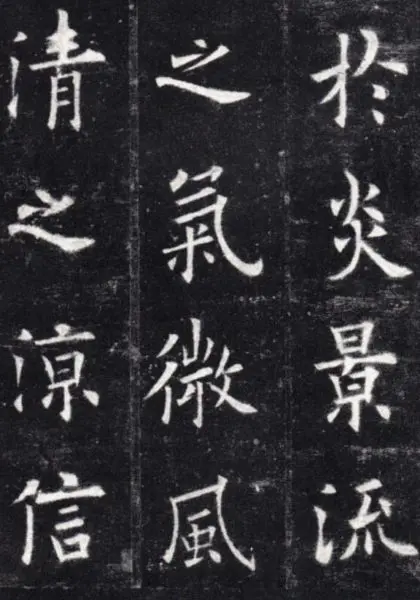 於炎景流
之氣微風
清之涼信